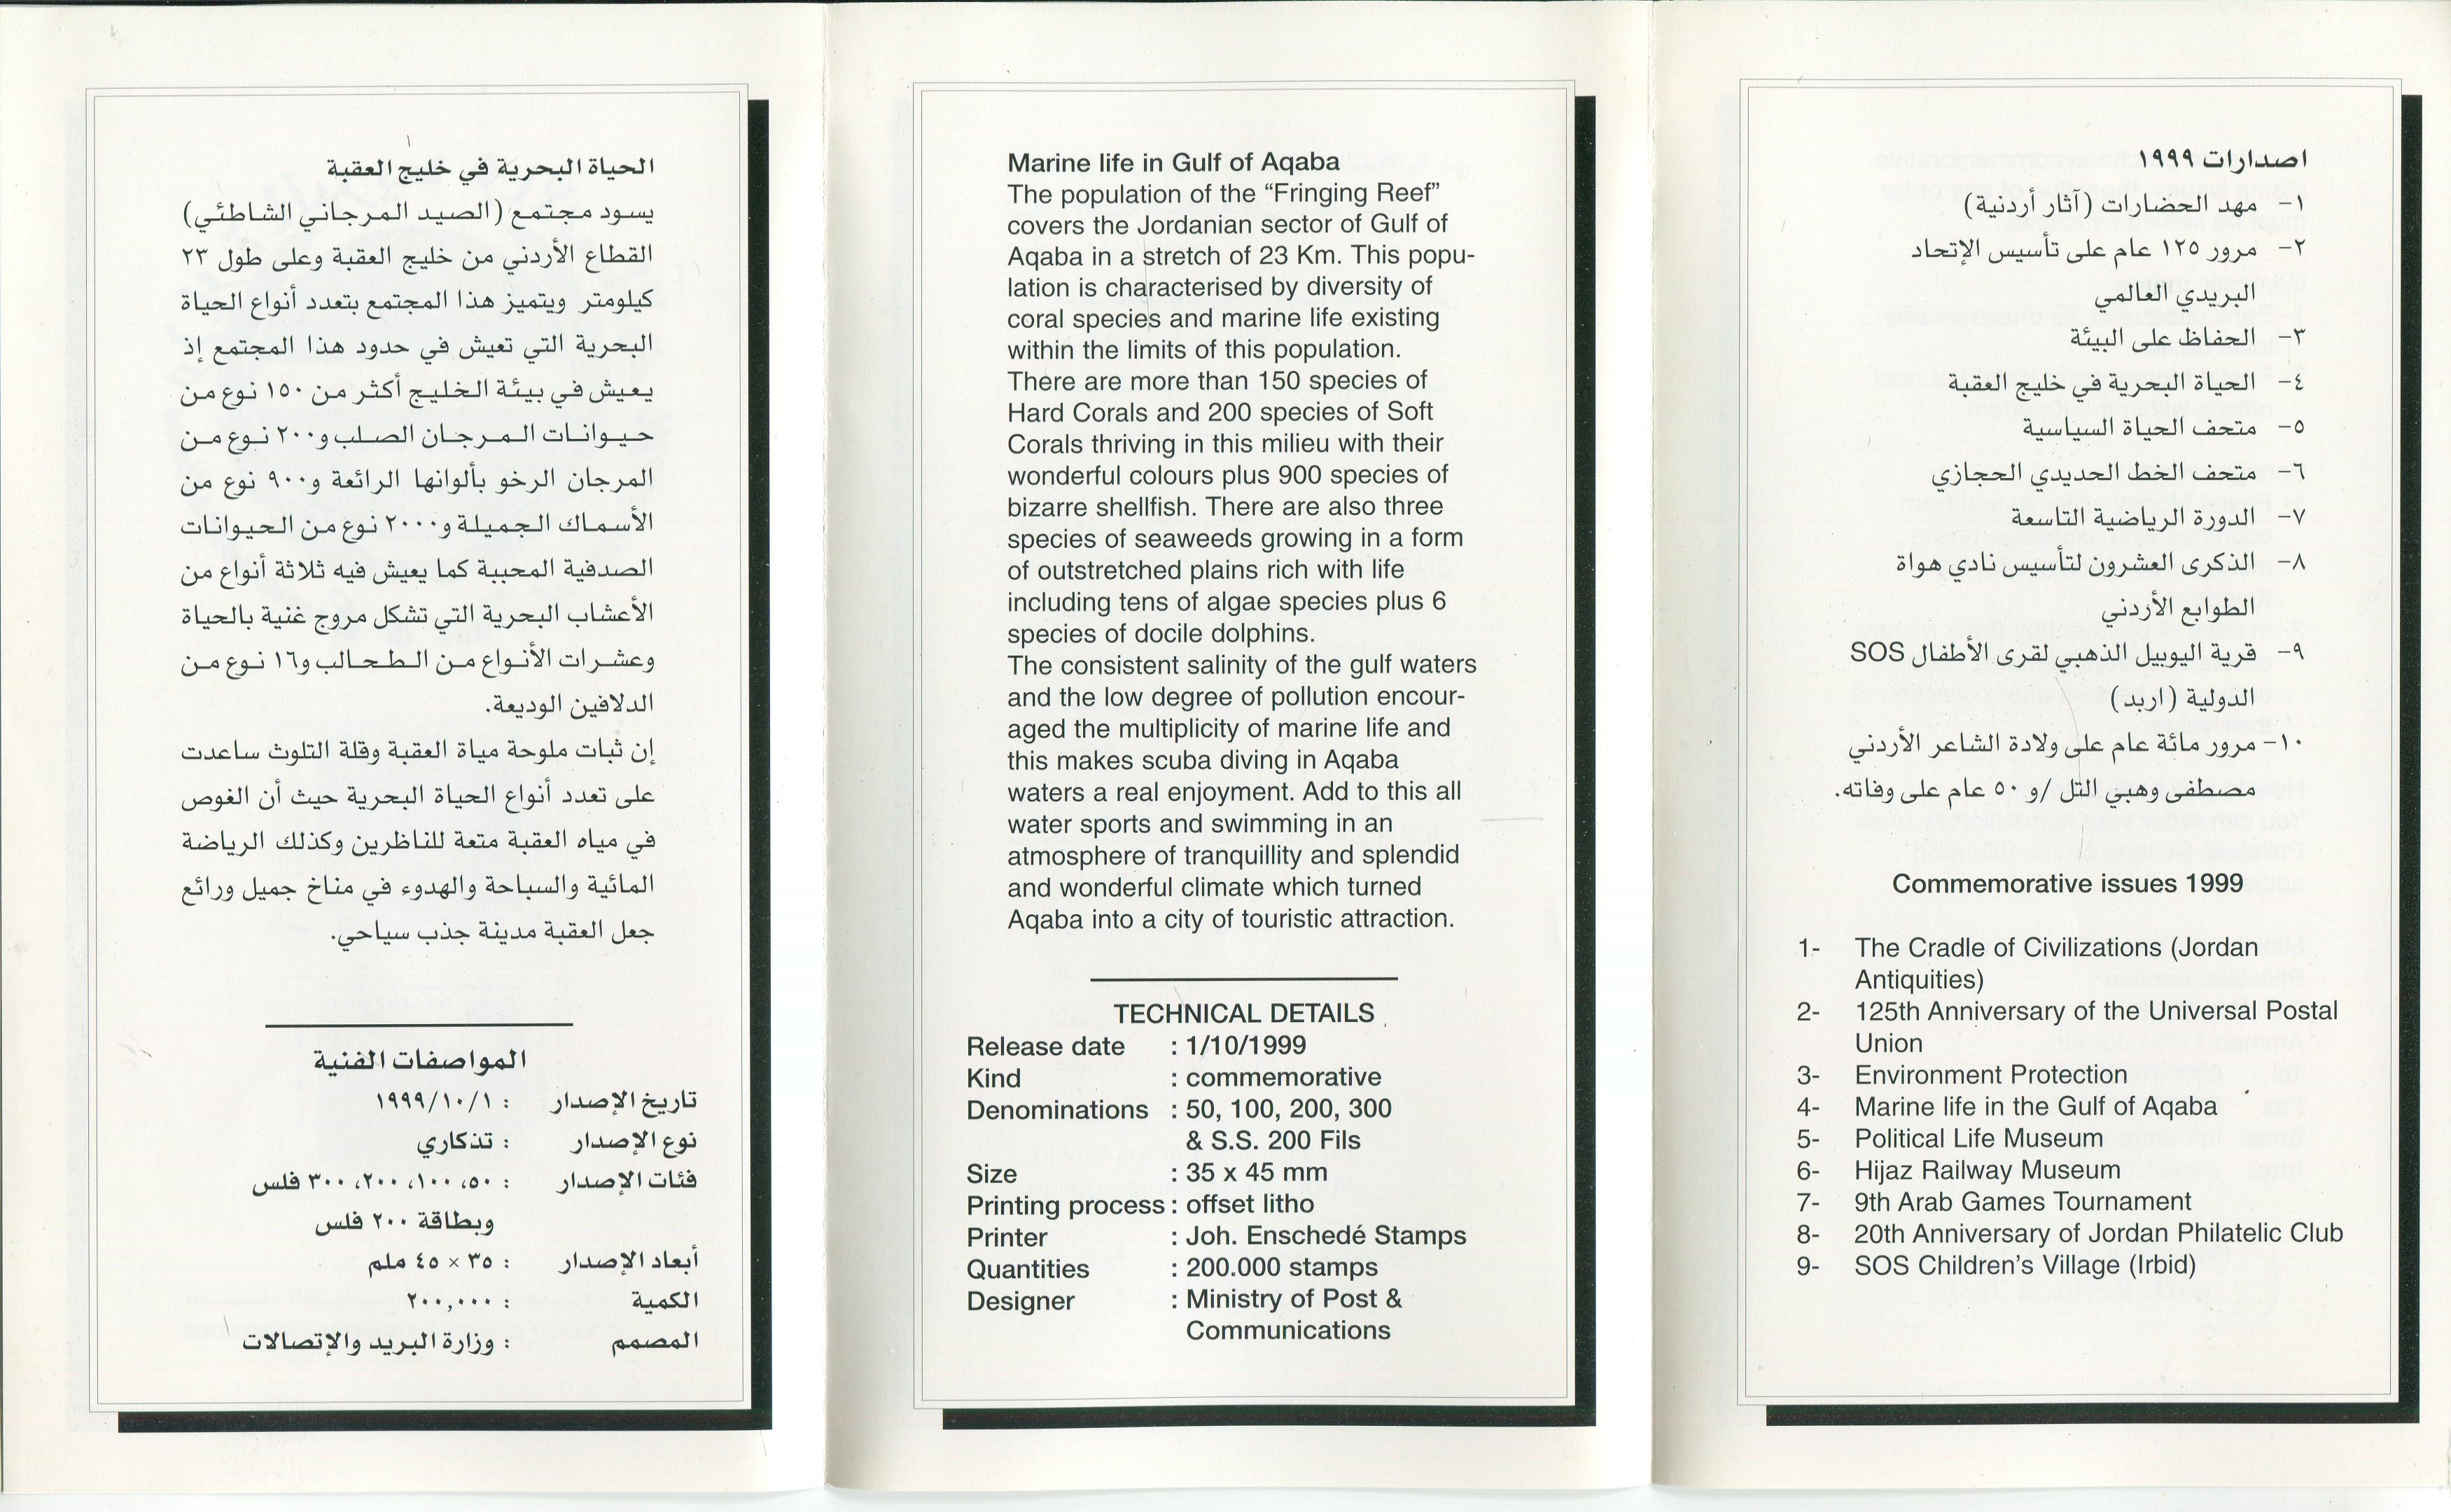 الحياة البحرية في خليج العقبة
يسود مجتمع (الصيد المرجاني الشاطئي)
القطاع الأردني من خليج العقبة وعلى طول ٢٣
كيلومتر ويتميز هذا المجتمع بتعدد أنواع الحياة
البحرية التي تعيش في حدود هذا المجتمع إذ
يعيش في بيئة الخليج أكثر من ١٥٠ نوع من
حيوانات المرجان الصلب و٢٠٠ نوع من
المرجان الرخو بألوانها الرائعة و٩٠٠ نوع من
الأسماك الجميلة و٢٠٠٠ نوع من الحيوانات
الصدفية المحببة كما يعيش فيه ثلاثة أنواع من
الأعشاب البحرية التي تشكل مروج غنية بالحياة
وعشرات الأنواع من الطحالب و١٦ نوع من
الدلافين الوديعة.
إن ثبات ملوحة مياة العقبة وقلة التلوث ساعدت
على تعدد أنواع الحياة البحرية حيث أن الغوص
في مياه العقبة متعة للناظرين وكذلك الرياضة
المائية والسباحة والهدوء في مناخ جميل ورائع
جعل العقبة مدينة جذب سياحي.
المواصفات الفنية
تاريخ الإصدار : ١٩٩٩/١٠/١
نوع الإصدار : تذكاري
فئات الإصدار : ٥٠، ١٠٠، ٢٠٠، ٣٠٠ فلس
وبطاقة ٢٠٠ فلس
أبعاد الإصدار : ٣٥ × ٤٥ ملم
الكمية : ٢٠٠,٠٠٠
المصمم : وزارة البريد والإتصالات
Marine life in Gulf of Aqaba
The population of the “Fringing Reef”
covers the Jordanian sector of Gulf of
Aqaba in a stretch of 23 Km. This popu-
lation is characterised by diversity of
coral species and marine life existing
within the limits of this population.
There are more than 150 species of
Hard Corals and 200 species of Soft
Corals thriving in this milieu with their
wonderful colours plus 900 species of
bizarre shellfish. There are also three
species of seaweeds growing in a form
of outstretched plains rich with life
including tens of algae species plus 6
species of docile dolphins.
The consistent salinity of the gulf waters
and the low degree of pollution encour-
aged the multiplicity of marine life and
this makes scuba diving in Aqaba
waters a real enjoyment. Add to this all
water sports and swimming in an
atmosphere of tranquillity and splendid
and wonderful climate which turned
Aqaba into a city of touristic attraction.
TECHNICAL DETAILS
Release date : 1/10/1999
Kind : commemorative
Denominations : 50, 100, 200, 300
& S.S. 200 Fils
Size : 35 x 45 mm
Printing process : offset litho
Printer : Joh. Enschedé Stamps
Quantities : 200.000 stamps
Designer : Ministry of Post &
Communications
اصدارات ١٩٩٩
١- مهد الحضارات (آثار أردنية)
٢- مرور ١٢٥ عام على تأسيس الإتحاد
البريدي العالمي
٣- الحفاظ على البيئة
٤- الحياة البحرية في خليج العقبة
٥- متحف الحياة السياسية
٦- متحف الخط الحديدي الحجازي
٧- الدورة الرياضية التاسعة
٨- الذكرى العشرون لتأسيس نادي هواة
الطوابع الأردني
٩- قرية اليوبيل الذهبي لقرى الأطفال SOS
الدولية (اربد)
١٠- مرور مائة عام على ولادة الشاعر الأردني
مصطفى وهبي التل /و ٥٠ عام على وفاته.
Commemorative issues 1999
1- The Cradle of Civilizations (Jordan
Antiquities)
2- 125th Anniversary of the Universal Postal
Union
3- Environment Protection
4- Marine life in the Gulf of Aqaba
5- Political Life Museum
6- Hijaz Railway Museum
7- 9th Arab Games Tournament
8- 20th Anniversary of Jordan Philatelic Club
9- SOS Children’s Village (Irbid)